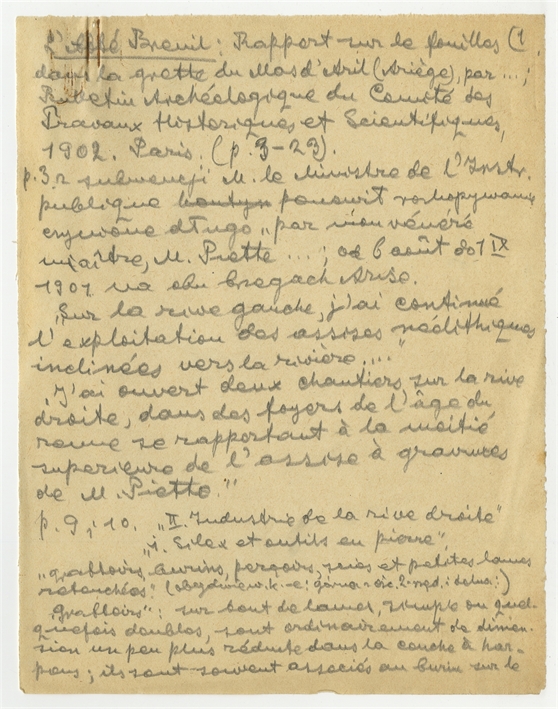 L'Abbé Breuil: Rapport sur de fouilles (1
dans la grotte du Mas d'Azil (Ariège), par ...;
Bulletin Archéologique du Comité des
Travaux Historiques et Scientifiques,
1902. Paris. (p. 3-23).
p. 3. z subwencji M. le Ministre de l'Instr.
publique ponowił rozkopywania
czynione długo "par mon vénéré
maître, M. Piette ...; od 6 août do 1 IX
1901 na obu brzegach Arise.
"Sur la rive gauche, j'ai continué
l'exploitation des assises néolithiques
inclinées vers la rivière...."
"J'ai ouvert deux chantiers sur la rive
droite, dans des foyers de l'âge du
renne se rapportant à la moitié
superieure de l'assise à gravures
de M. Piette."
p. 9, i 10. "II. Industrie de la rive droite"
"1. Silex et outils en pierre"
"grattoirs, burins, perçoirs, scies et petites lames
retouchées" (
"Grattoirs": sur bout de lames, simple ou quel-
quefois doubles, sont ordinairement de dimen-
sion un peu plus réduite dans la couche à har-
pons; ils sont souvent associés au burin sur le